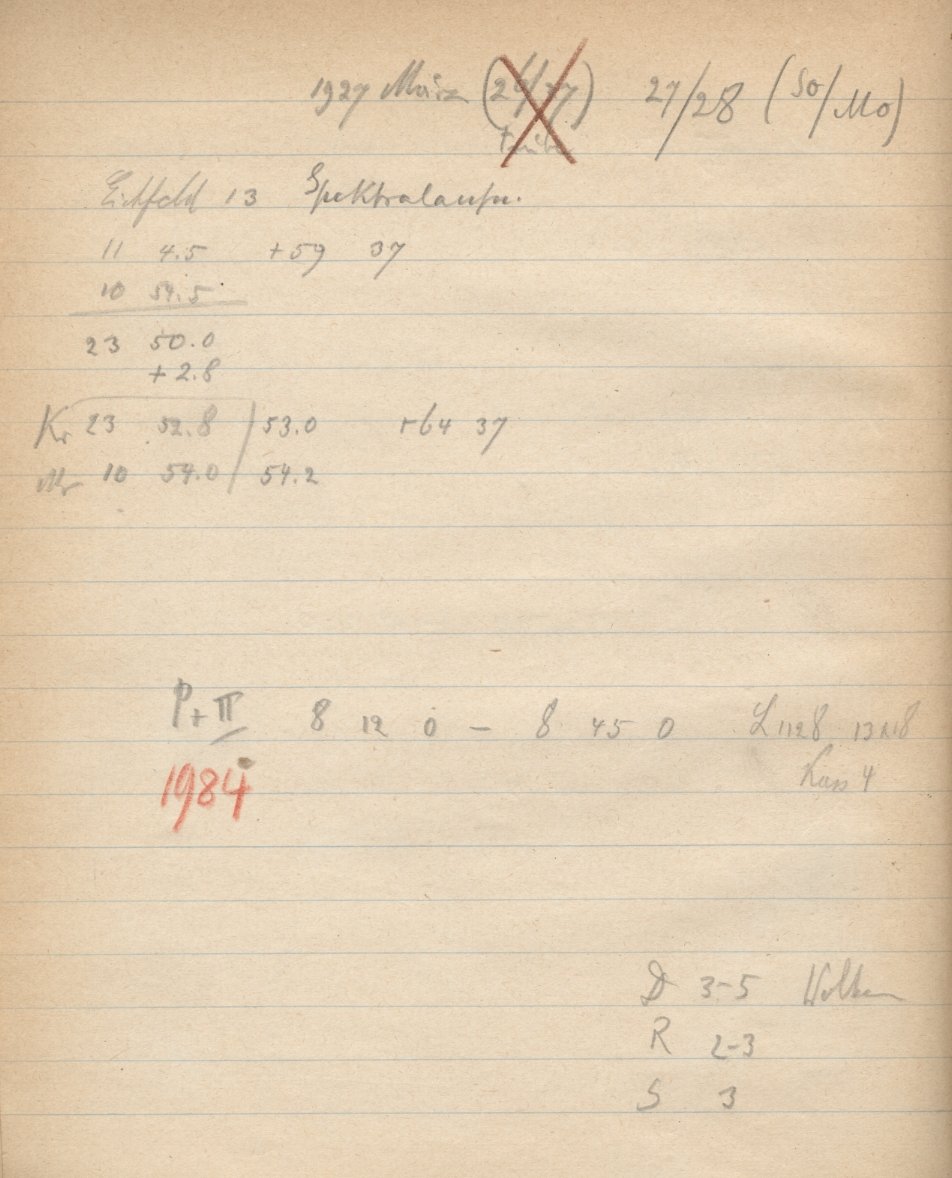 1927 März 27/28 (So/Mo)
Eichfeld 13 Spektralaufn.
11 4.5 +59 37
10 54.5
23 50.0
+ 2.8
Kr 23 52.8 53.0 +64 37
10 54.0 54.2
P + II 8 12 0 – 8 45 0 L 1128 13x18
Kass 4
1984
D 3-5 Wolken
R 2-3
S 3